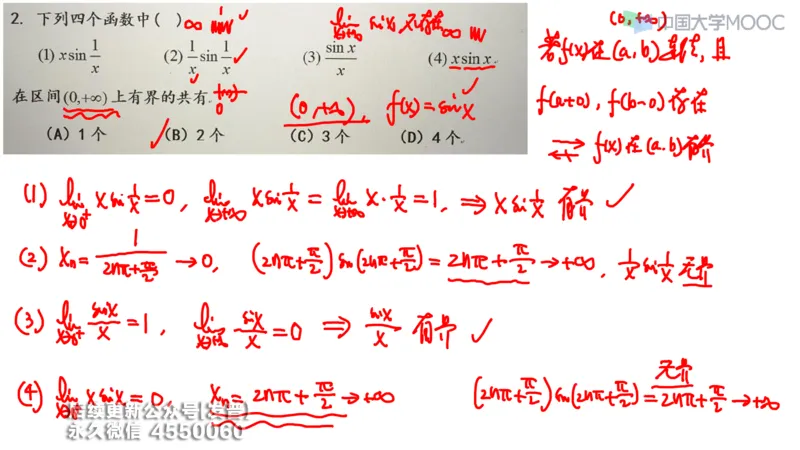 2. 下列四个函数中( )
(1) x sin 1/x (2) 1/x sin 1/x (3) sin x / x (4) x sin x
在区间(0,+∞)上有界的共有
(A) 1个 (B) 2个 (C) 3个 (D) 4个
(0,+∞), f(x) = sin x
lim x→+∞ sin x 不存在
(0,+∞)
中国大学MOOC
若f(x)在(a,b)连续,且
f(a+0), f(b-0)存在
f(x)在(a,b)有界
(1) lim x→0⁺ x sin 1/x = 0, lim x→+∞ x sin 1/x = lim x→+∞ x · 1/x = 1, ⇒ x sin 1/x 有界 ✓
(2) xₙ = 1/(2nπ+π/2) → 0, (2nπ+π/2) sin(2nπ+π/2) = 2nπ+π/2 → +∞, 1/x sin 1/x 无界
(3) lim x→0⁺ sin x / x = 1, lim x→+∞ sin x / x = 0 ⇒ sin x / x 有界 ✓
(4) lim x→0⁺ x sin x = 0, xₙ = 2nπ + π/2 → +∞ (2nπ+π/2) sin(2nπ+π/2) = 2nπ+π/2 → +∞
无界
持续更新公众号
永久微信 4550060